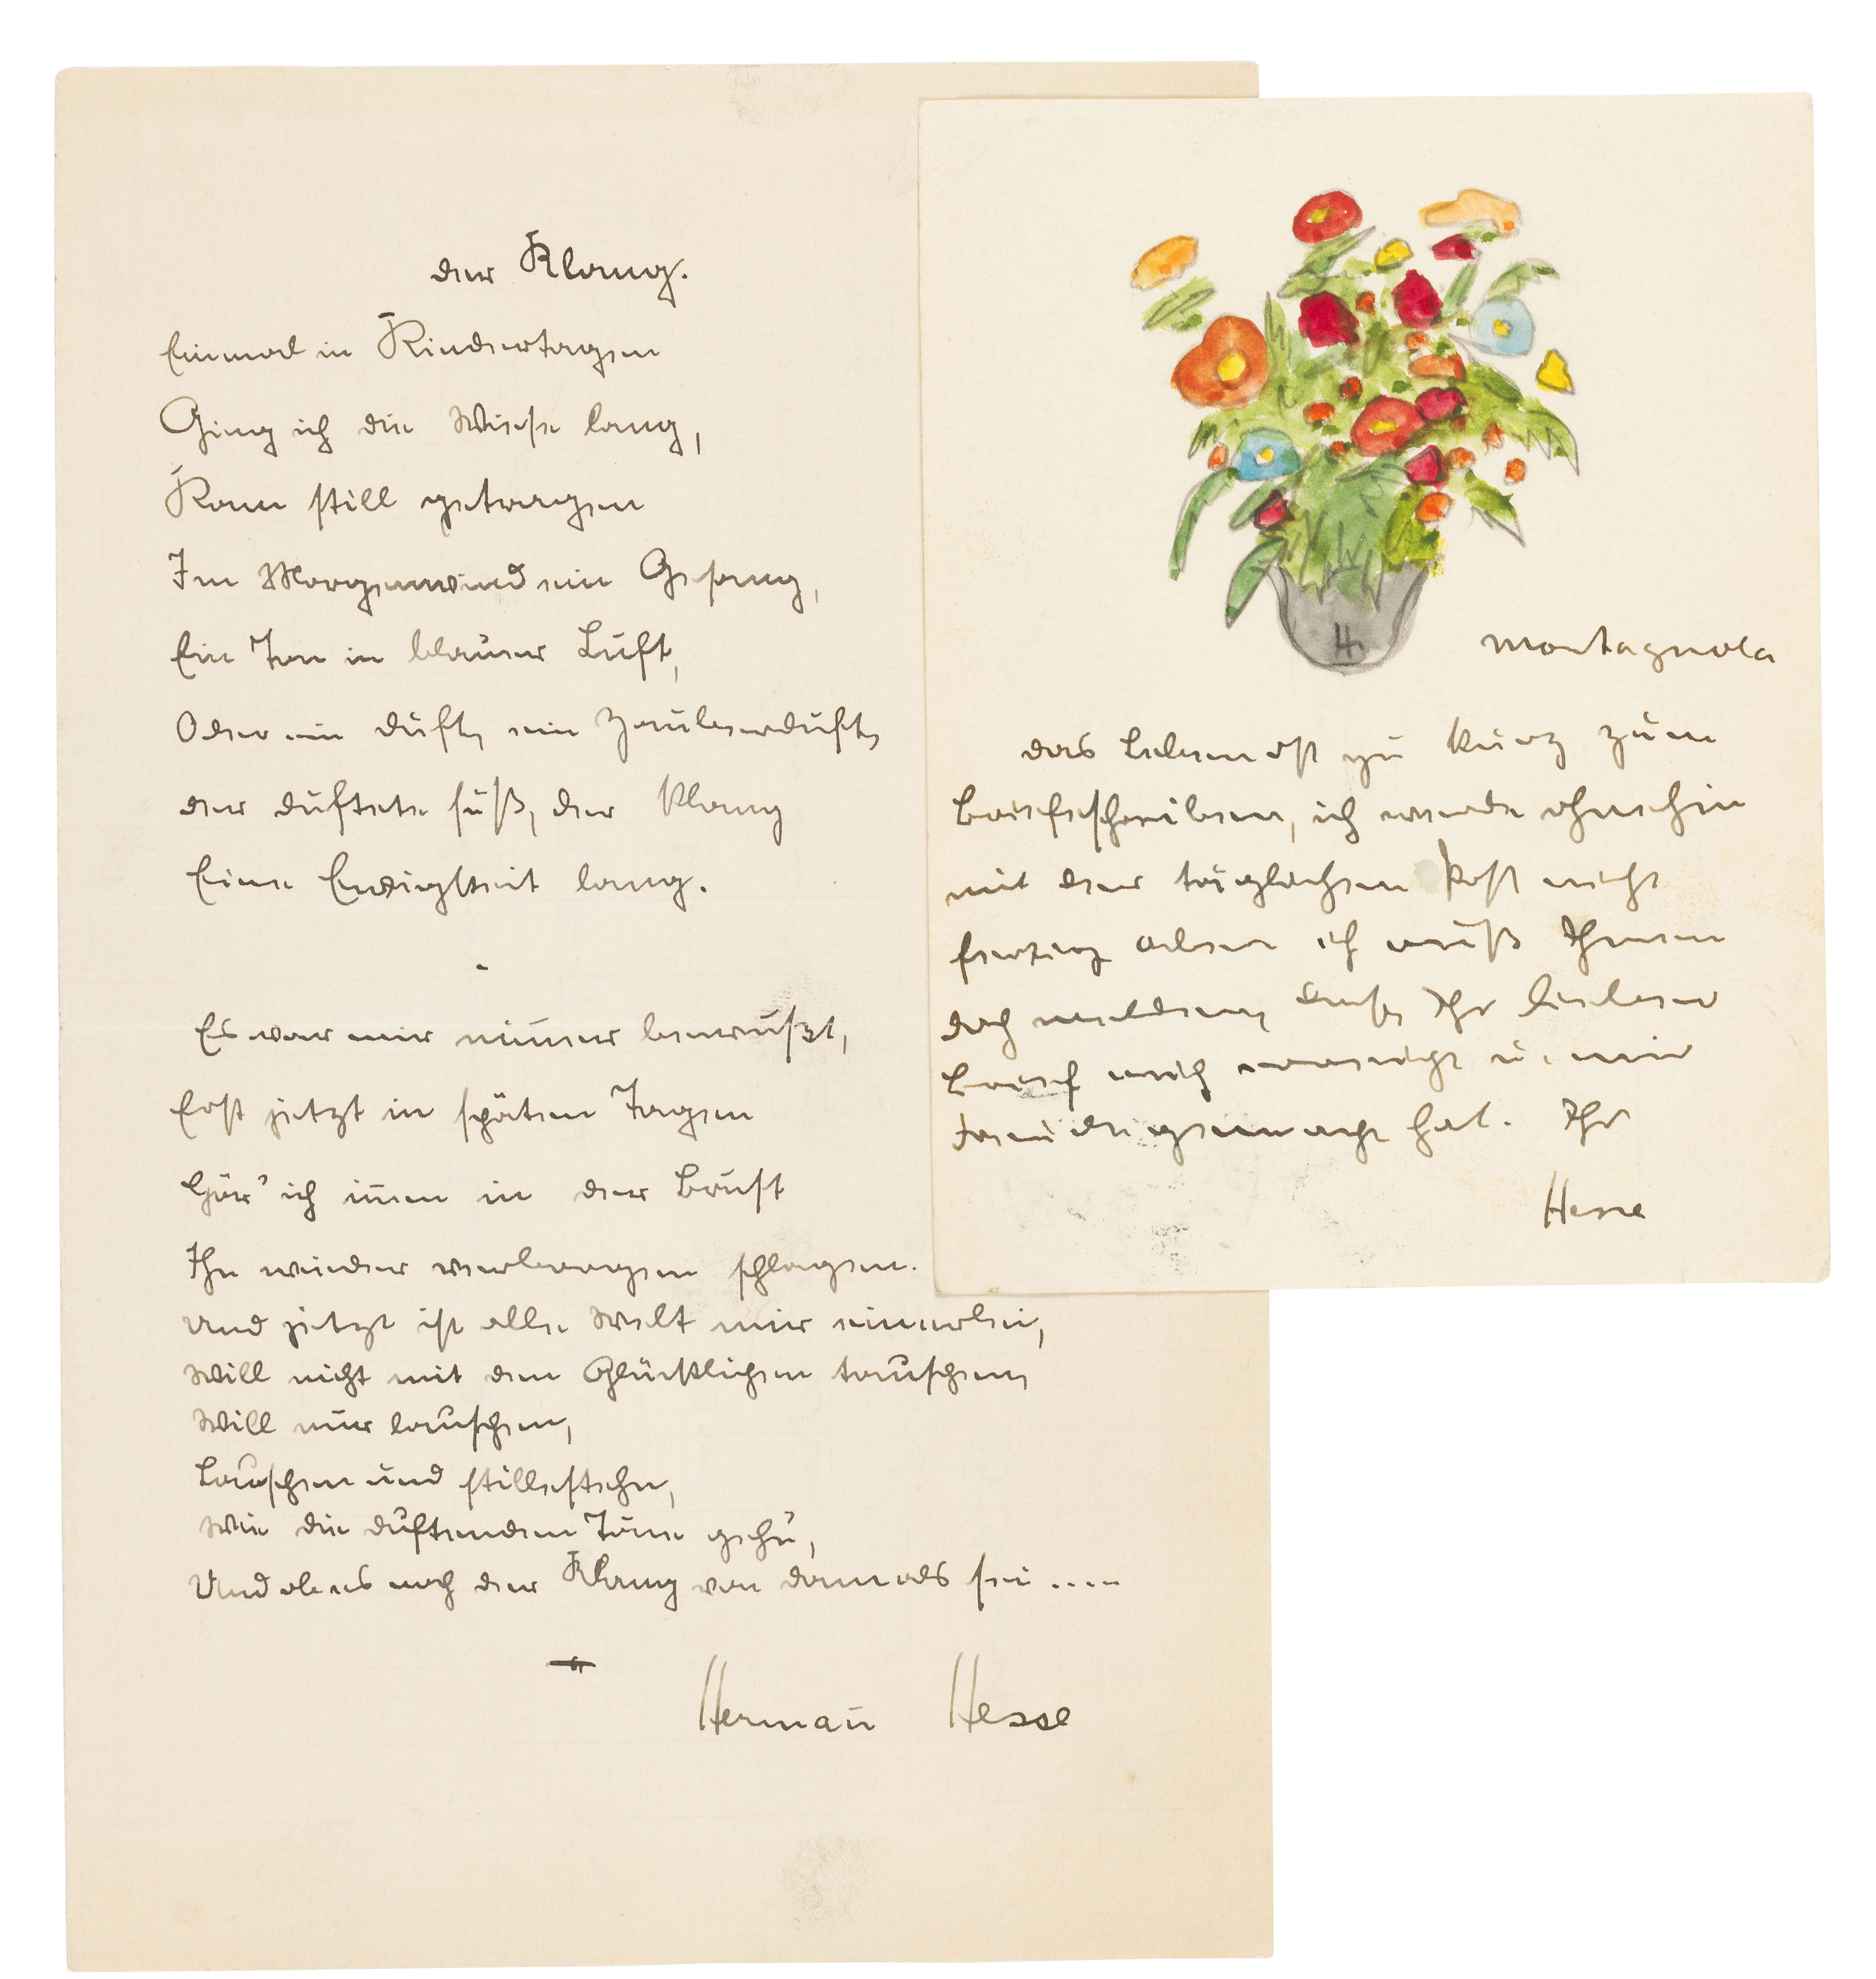 der Klang.
Einmal in Kindertagen
Ging ich die Wiese lang,
Kam still getragen
Im Morgenwind ein Gesang,
Ein Ton in blauer Luft,
Oder ein Duft, ein Zauberduft,
der duftete süß, der Klang
Eine Ewigkeit lang.
Es war mir nimer bewußt,
Erst jetzt in späten Tagen
Hör' ich innen in der Brust
Ihn wieder verborgen schlagen.
Und jetzt ist alle Welt mir einerlei,
Will nicht mit den Glücklichen tauschen,
Will nur lauschen,
Lauschen und stillestehn,
Wie die duftenden Töne gehn,
Und ob es noch der Klang von damals sei .....
Hermann Hesse
H
Montagnola
das Leben ist zu kurz zum
Briefeschreiben, ich werde ohnehin
mit der täglichen Post nicht
fertig aber ich muß Ihnen
doch melden, daß Ihr lieber
Brief mich erreicht u. mir
Freude gemacht hat. Ihr
Hesse